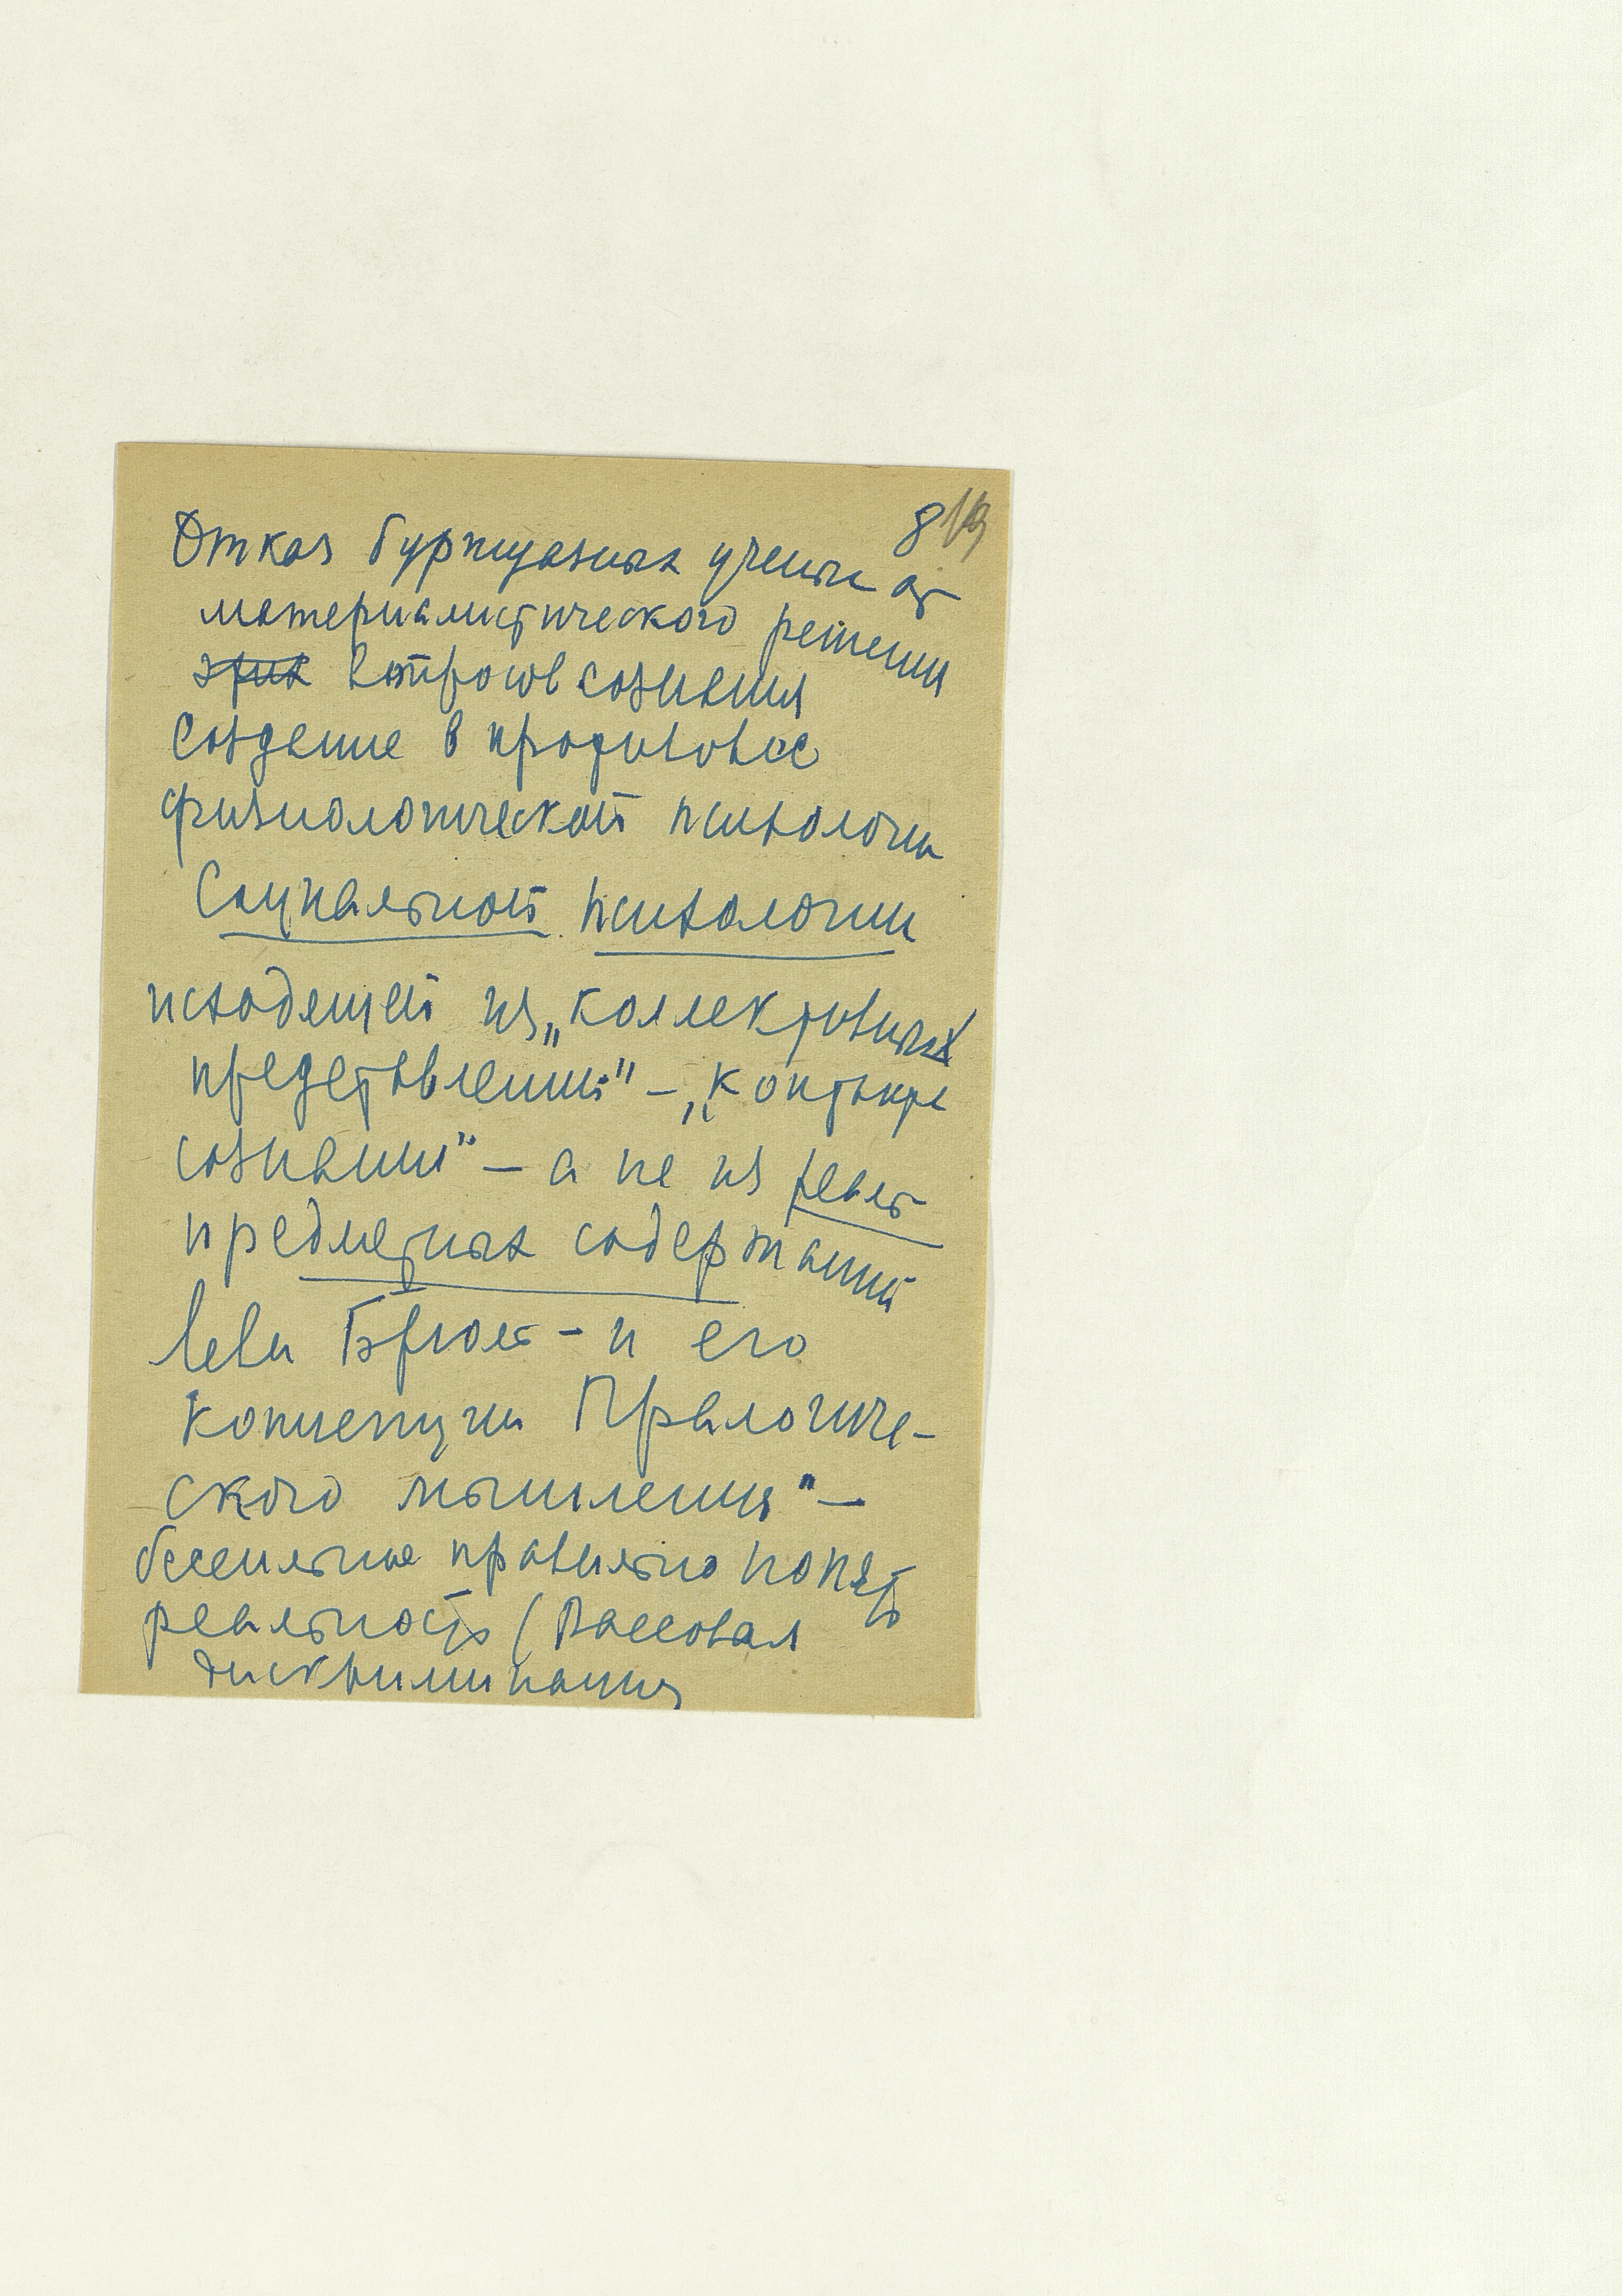 8 19
Отказ буржуазных ученых от
материалистического решения
этих вопросов сознания
Создание в противовес
физиологической психологии
Социальной психологии
исходящей из „коллективных
представлений" – „контакта
сознаний" – а не из реальн
предметных содержаний
Леви Брюль – и его
концепции Пралогиче-
ского мышления" –
бессилие правильно понять
реальность (Рассовая
дискриминация